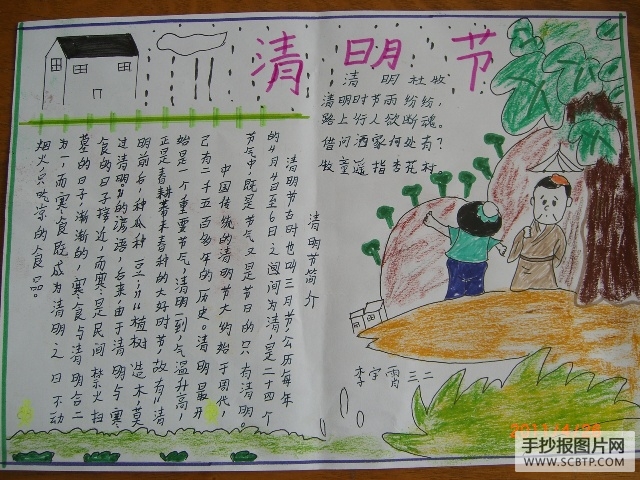 清明节
清明 杜牧
清明时节雨纷纷,
路上行人欲断魂。
借问酒家何处有?
牧童遥指杏花村
清明节简介
清明节古时也叫三月节,公历每年
的4月4日至6日之间为清,是二十四个
节气中,既是节气又是节日的只有清明。
中国传统的清明节大约始于周代,
已有二千五百多年的历史。清明最开
始是一个重要节气,清明一到,气温升高,
正是春耕春种的大好时节,故有"清
明前后,种瓜种豆";"植树造木莫
过清明"的谚语,后来,由于清明与寒
食的日子接近,而寒是民间禁火扫
墓的日子渐渐的,寒食与清明合二
为一,而寒食既成为清明之日不动
烟火,只吃凉的食品。
李宇霄 三二
手抄报图片网
WWW.SCBTP.COM